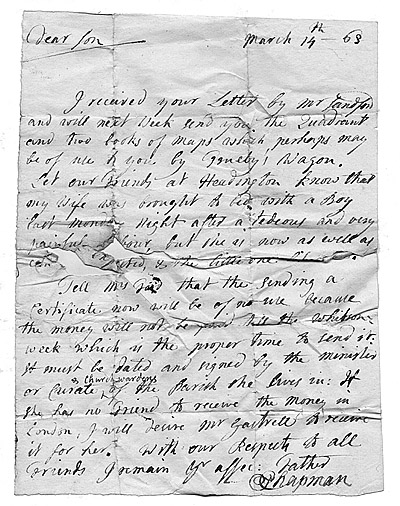 Dear Son March 14th - 63
I received your Letter by Mr Sandford
and will next week send you the Quadrant
and two books of Maps which perhaps may
be of use to you, by Wagon.
Let our Friends at Headington know that
my Wife was brought to bed with a Boy
last Monday Night after a tedeous and very
painful but she is now as well as
can & the little one
Tell Mrs that the sending a
Certificate now will be of no use because
the money will not be paid till the Whitson-
week which is the proper time to send it.
it must be dated and signed by the minister
& Church wardens
or Curate of the Parish she lives in: If
she has no Friend to receive the money in
London, I will desire Mr Gastrell to receive
it for her. With our Respects to all
Friends I remain yr affec: Father
Chapman